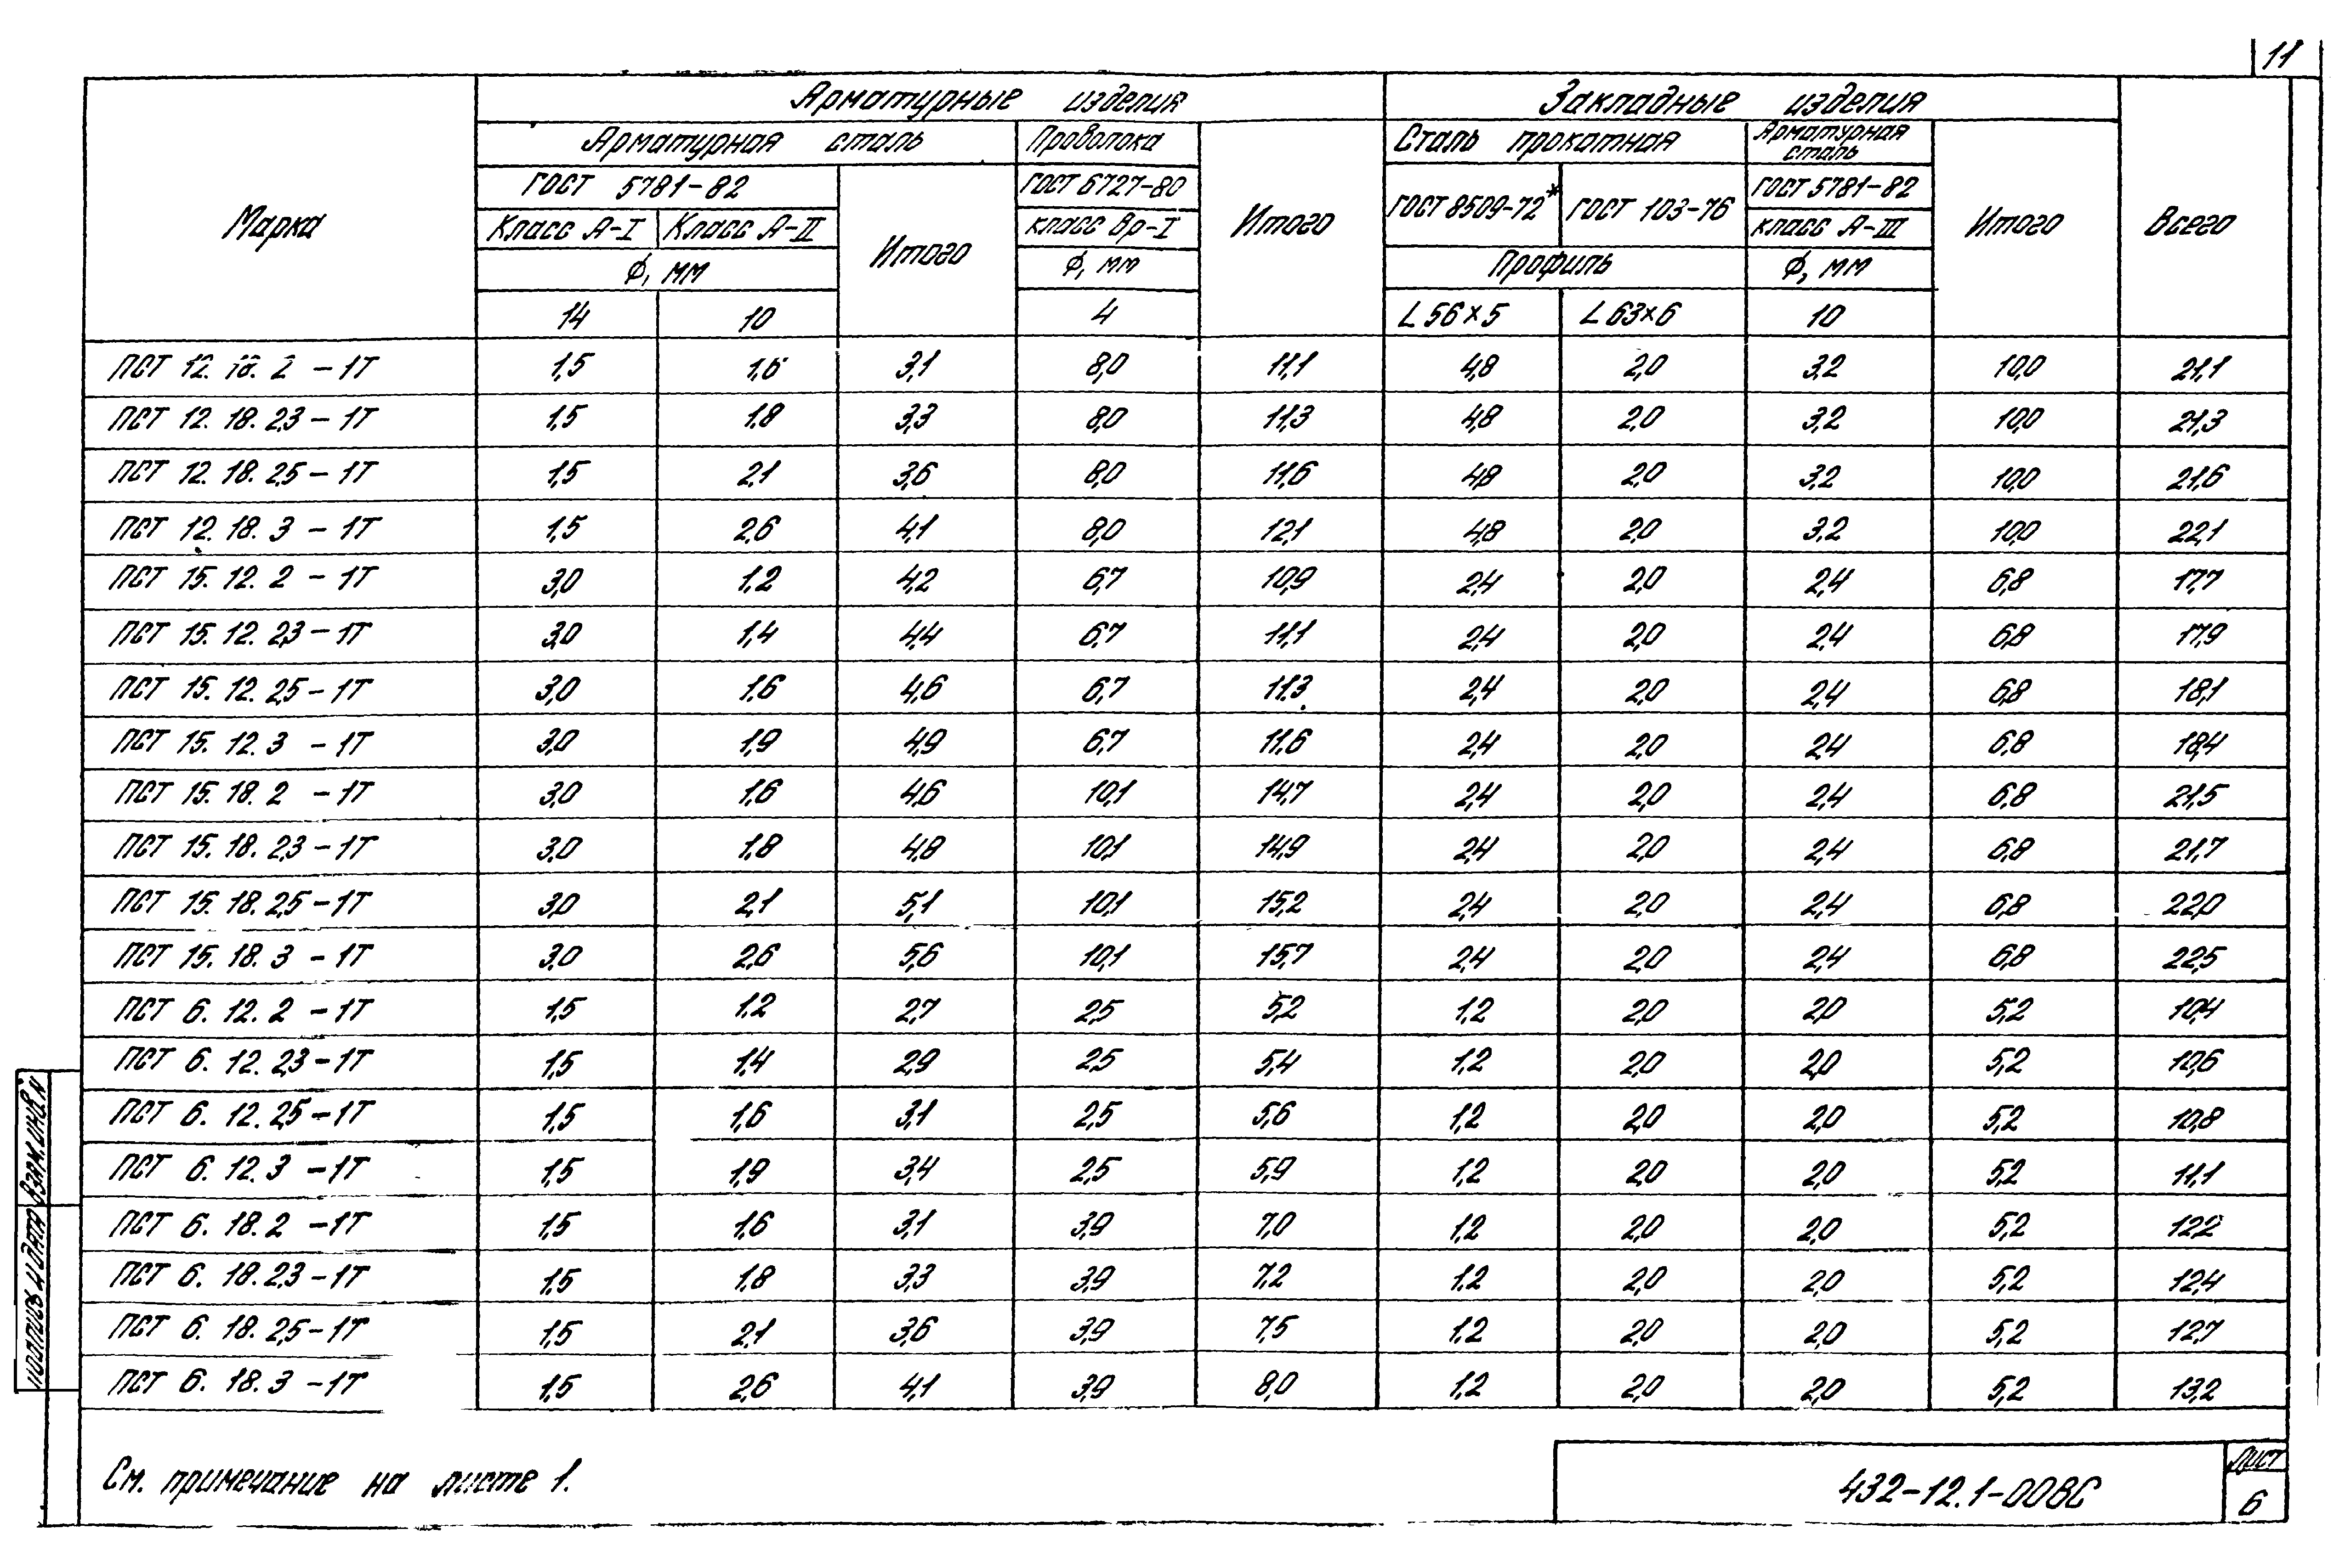 11
Марка Арматурные изделия Закладные изделия Всего
Арматурная сталь Проволока Итого Сталь прокатная Арматурная сталь Итого
ГОСТ 5781-82 Итого ГОСТ 6727-80 ГОСТ 8509-72* ГОСТ 103-76 ГОСТ 5781-82
Класс А-I Класс А-II класс Вр-I класс А-III
ф, мм ф, мм Профиль ф, мм
14 10 4 L 56×5 L 63×6 10
ПСТ 12. 18. 2 - 1Т 1,5 1,6 3,1 8,0 11,1 4,8 2,0 3,2 10,0 21,1
ПСТ 12. 18. 2,3 - 1Т 1,5 1,8 3,3 8,0 11,3 4,8 2,0 3,2 10,0 21,3
ПСТ 12. 18. 2,5 - 1Т 1,5 2,1 3,6 8,0 11,6 4,8 2,0 3,2 10,0 21,6
ПСТ 12. 18. 3 - 1Т 1,5 2,6 4,1 8,0 12,1 4,8 2,0 3,2 10,0 22,1
ПСТ 15. 12. 2 - 1Т 3,0 1,2 4,2 6,7 10,9 2,4 2,0 2,4 6,8 17,7
ПСТ 15. 12. 2,3 - 1Т 3,0 1,4 4,4 6,7 11,1 2,4 2,0 2,4 6,8 17,9
ПСТ 15. 12. 2,5 - 1Т 3,0 1,6 4,6 6,7 11,3 2,4 2,0 2,4 6,8 18,1
ПСТ 15. 12. 3 - 1Т 3,0 1,9 4,9 6,7 11,6 2,4 2,0 2,4 6,8 18,4
ПСТ 15. 18. 2 - 1Т 3,0 1,6 4,6 10,1 14,7 2,4 2,0 2,4 6,8 21,5
ПСТ 15. 18. 2,3 - 1Т 3,0 1,8 4,8 10,1 14,9 2,4 2,0 2,4 6,8 21,7
ПСТ 15. 18. 2,5 - 1Т 3,0 2,1 5,1 10,1 15,2 2,4 2,0 2,4 6,8 22,0
ПСТ 15. 18. 3 - 1Т 3,0 2,6 5,6 10,1 15,7 2,4 2,0 2,4 6,8 22,5
ПСТ 6. 12. 2 - 1Т 1,5 1,2 2,7 2,5 5,2 1,2 2,0 2,0 5,2 10,4
ПСТ 6. 12. 2,3 - 1Т 1,5 1,4 2,9 2,5 5,4 1,2 2,0 2,0 5,2 10,6
ПСТ 6. 12. 2,5 - 1Т 1,5 1,6 3,1 2,5 5,6 1,2 2,0 2,0 5,2 10,8
ПСТ 6. 12. 3 - 1Т 1,5 1,9 3,4 2,5 5,9 1,2 2,0 2,0 5,2 11,1
ПСТ 6. 18. 2 - 1Т 1,5 1,6 3,1 3,9 7,0 1,2 2,0 2,0 5,2 12,2
ПСТ 6. 18. 2,3 - 1Т 1,5 1,8 3,3 3,9 7,2 1,2 2,0 2,0 5,2 12,4
ПСТ 6. 18. 2,5 - 1Т 1,5 2,1 3,6 3,9 7,5 1,2 2,0 2,0 5,2 12,7
ПСТ 6. 18. 3 - 1Т 1,5 2,6 4,1 3,9 8,0 1,2 2,0 2,0 5,2 13,2
См. примечание на листе 1.
432-12.1-00ВС
Лист
6
Взам.инв.N
Подпись и дата